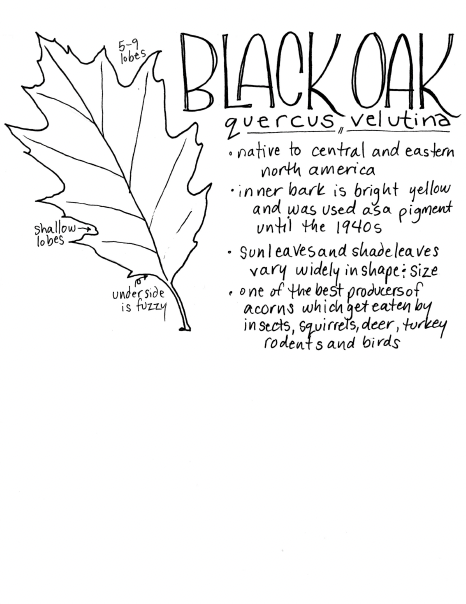 BLACK OAK
quercus velutina
5-9
lobes
shallow
lobes
underside
is fuzzy
• native to central and eastern
north america
• inner bark is bright yellow
and was used as a pigment
until the 1940s
• sun leaves and shade leaves
vary widely in shape & size
• one of the best producers of
acorns which get eaten by
insects, squirrels, deer, turkey
rodents and birds